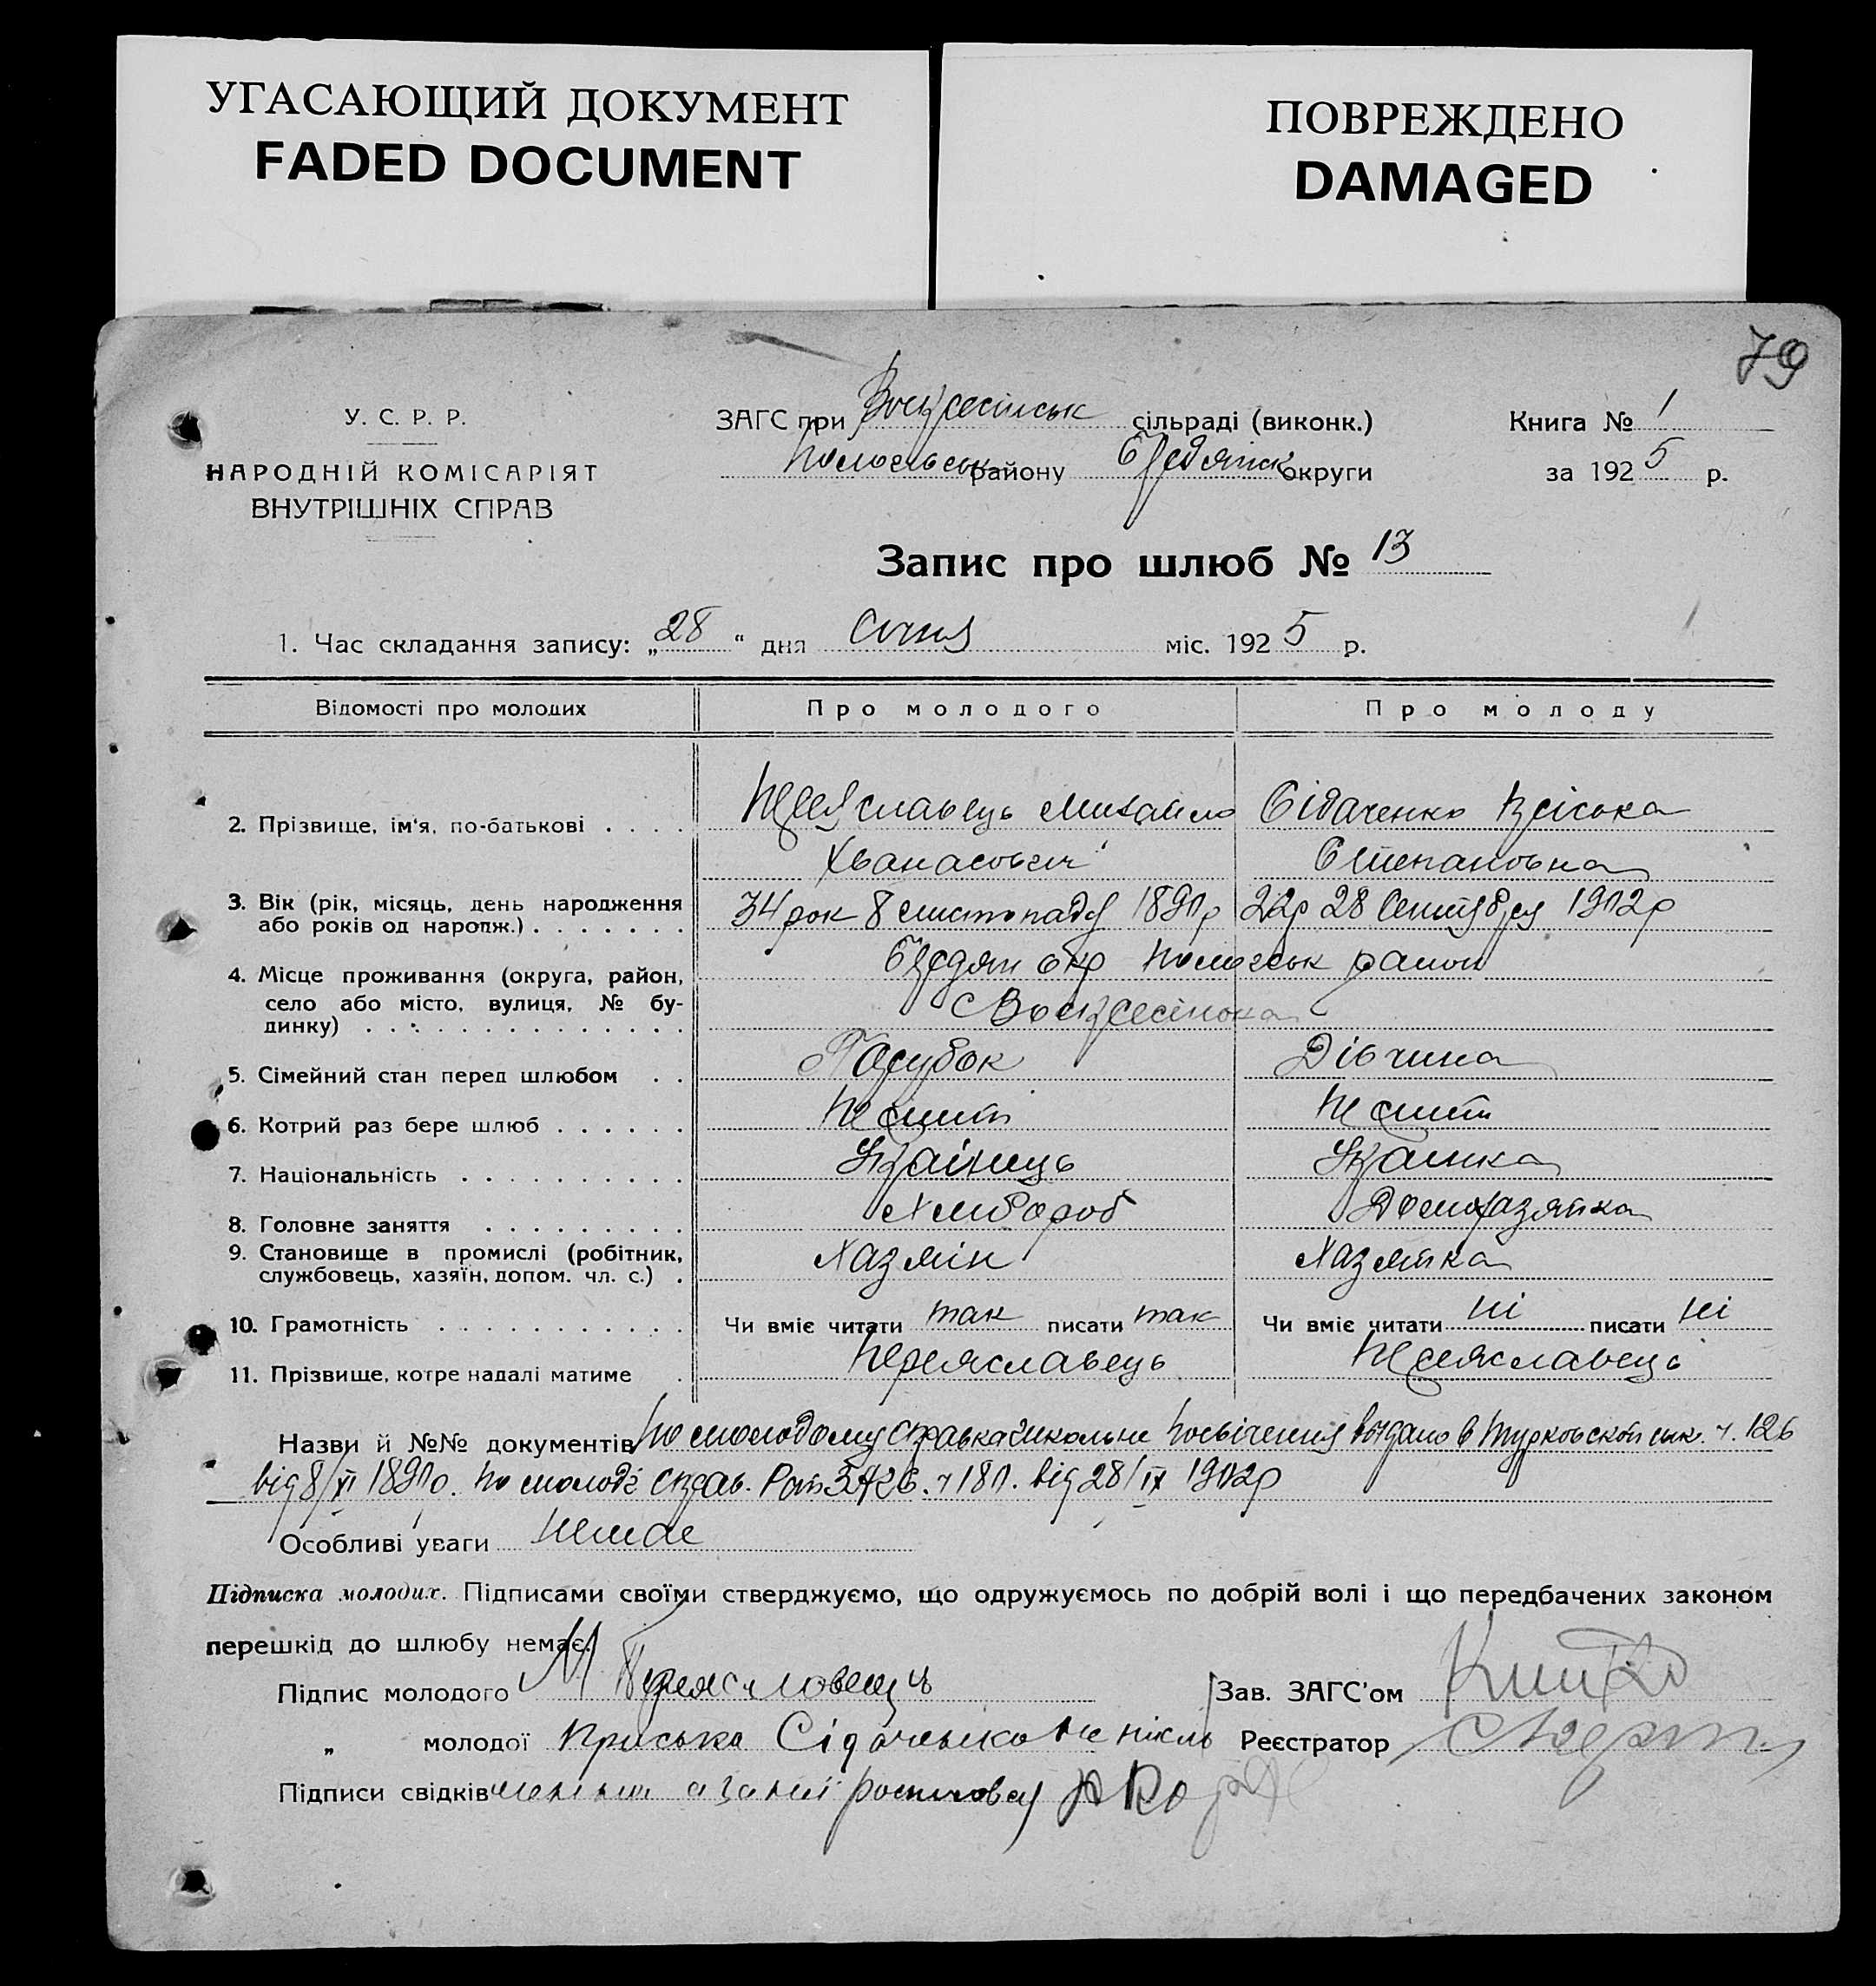 УГАСАЮЩИЙ ДОКУМЕНТ
FADED DOCUMENT
ПОВРЕЖДЕНО
DAMAGED
79
У. С. Р. Р.
НАРОДНІЙ КОМІСАРІЯТ
ВНУТРІШНІХ СПРАВ
ЗАГС при Воскресінськ сільраді (виконк.)
Пологівськ району Бердянск округи
Книга № 1
за 1925 р.
Запис про шлюб № 13
1. Час складання запису: „28“ дня Січня міс. 1925 р.
Відомості про молодих Про молодого Про молоду
2. Прізвище, ім'я, по-батькові . . . . Переяславець Михайло Сідаченко Пріська
Хванасович Степановна
3. Вік (рік, місяць, день народження або років од народж.) . . . . . . . 34 рок 8 листопаду 1890 р 22р 28 Сентября 1902р
4. Місце проживання (округа, район, село або місто, вулиця, № будинку) . . . . . . . . . . . . . . Бердян окр Пологівськ район
с Воскресінка
5. Сімейний стан перед шлюбом . . Парубок Дівчина
6. Котрий раз бере шлюб . . . . . . Перший Перший
7. Національність . . . . . . . . . . Українець Українка
8. Головне заняття . . . . . . . . . Хлибороб Домохазяйка
9. Становище в промислі (робітник, службовець, хазяїн, допом. чл. с.) . Хазяїн Хазяйка
10. Грамотність . . . . . . . . . . . Чи вміє читати так писати так Чи вміє читати ні писати ні
11. Прізвище, котре надалі матиме . Переяславець Переяславець
Назви й №№ документів По молодому справка школьне посвічення выдано в Турковской шк. ч. 126
від 8/XI 1890 р. по молоді справ. ч 180. від 28/IX 1902р
Особливі уваги Немає
Підписка молодих. Підписами своїми стверджуємо, що одружуємось по добрій волі і що передбачених законом
перешкід до шлюбу немає.
Підпис молодого М Переяславець Зав. ЗАГС'ом
„ молодої Приська Сідаченко Реєстратор
Підписи свідків